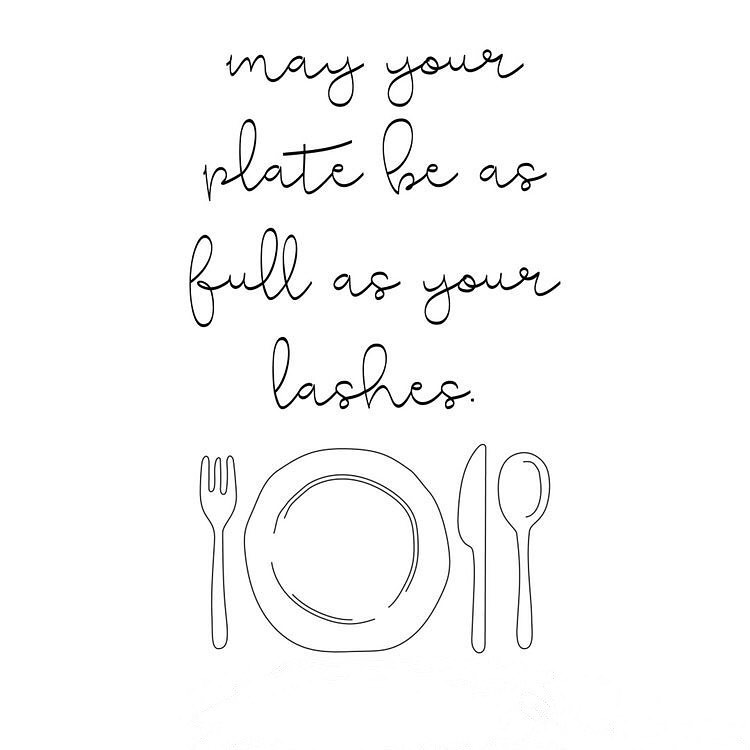 may your
plate be as
full as your
lashes.